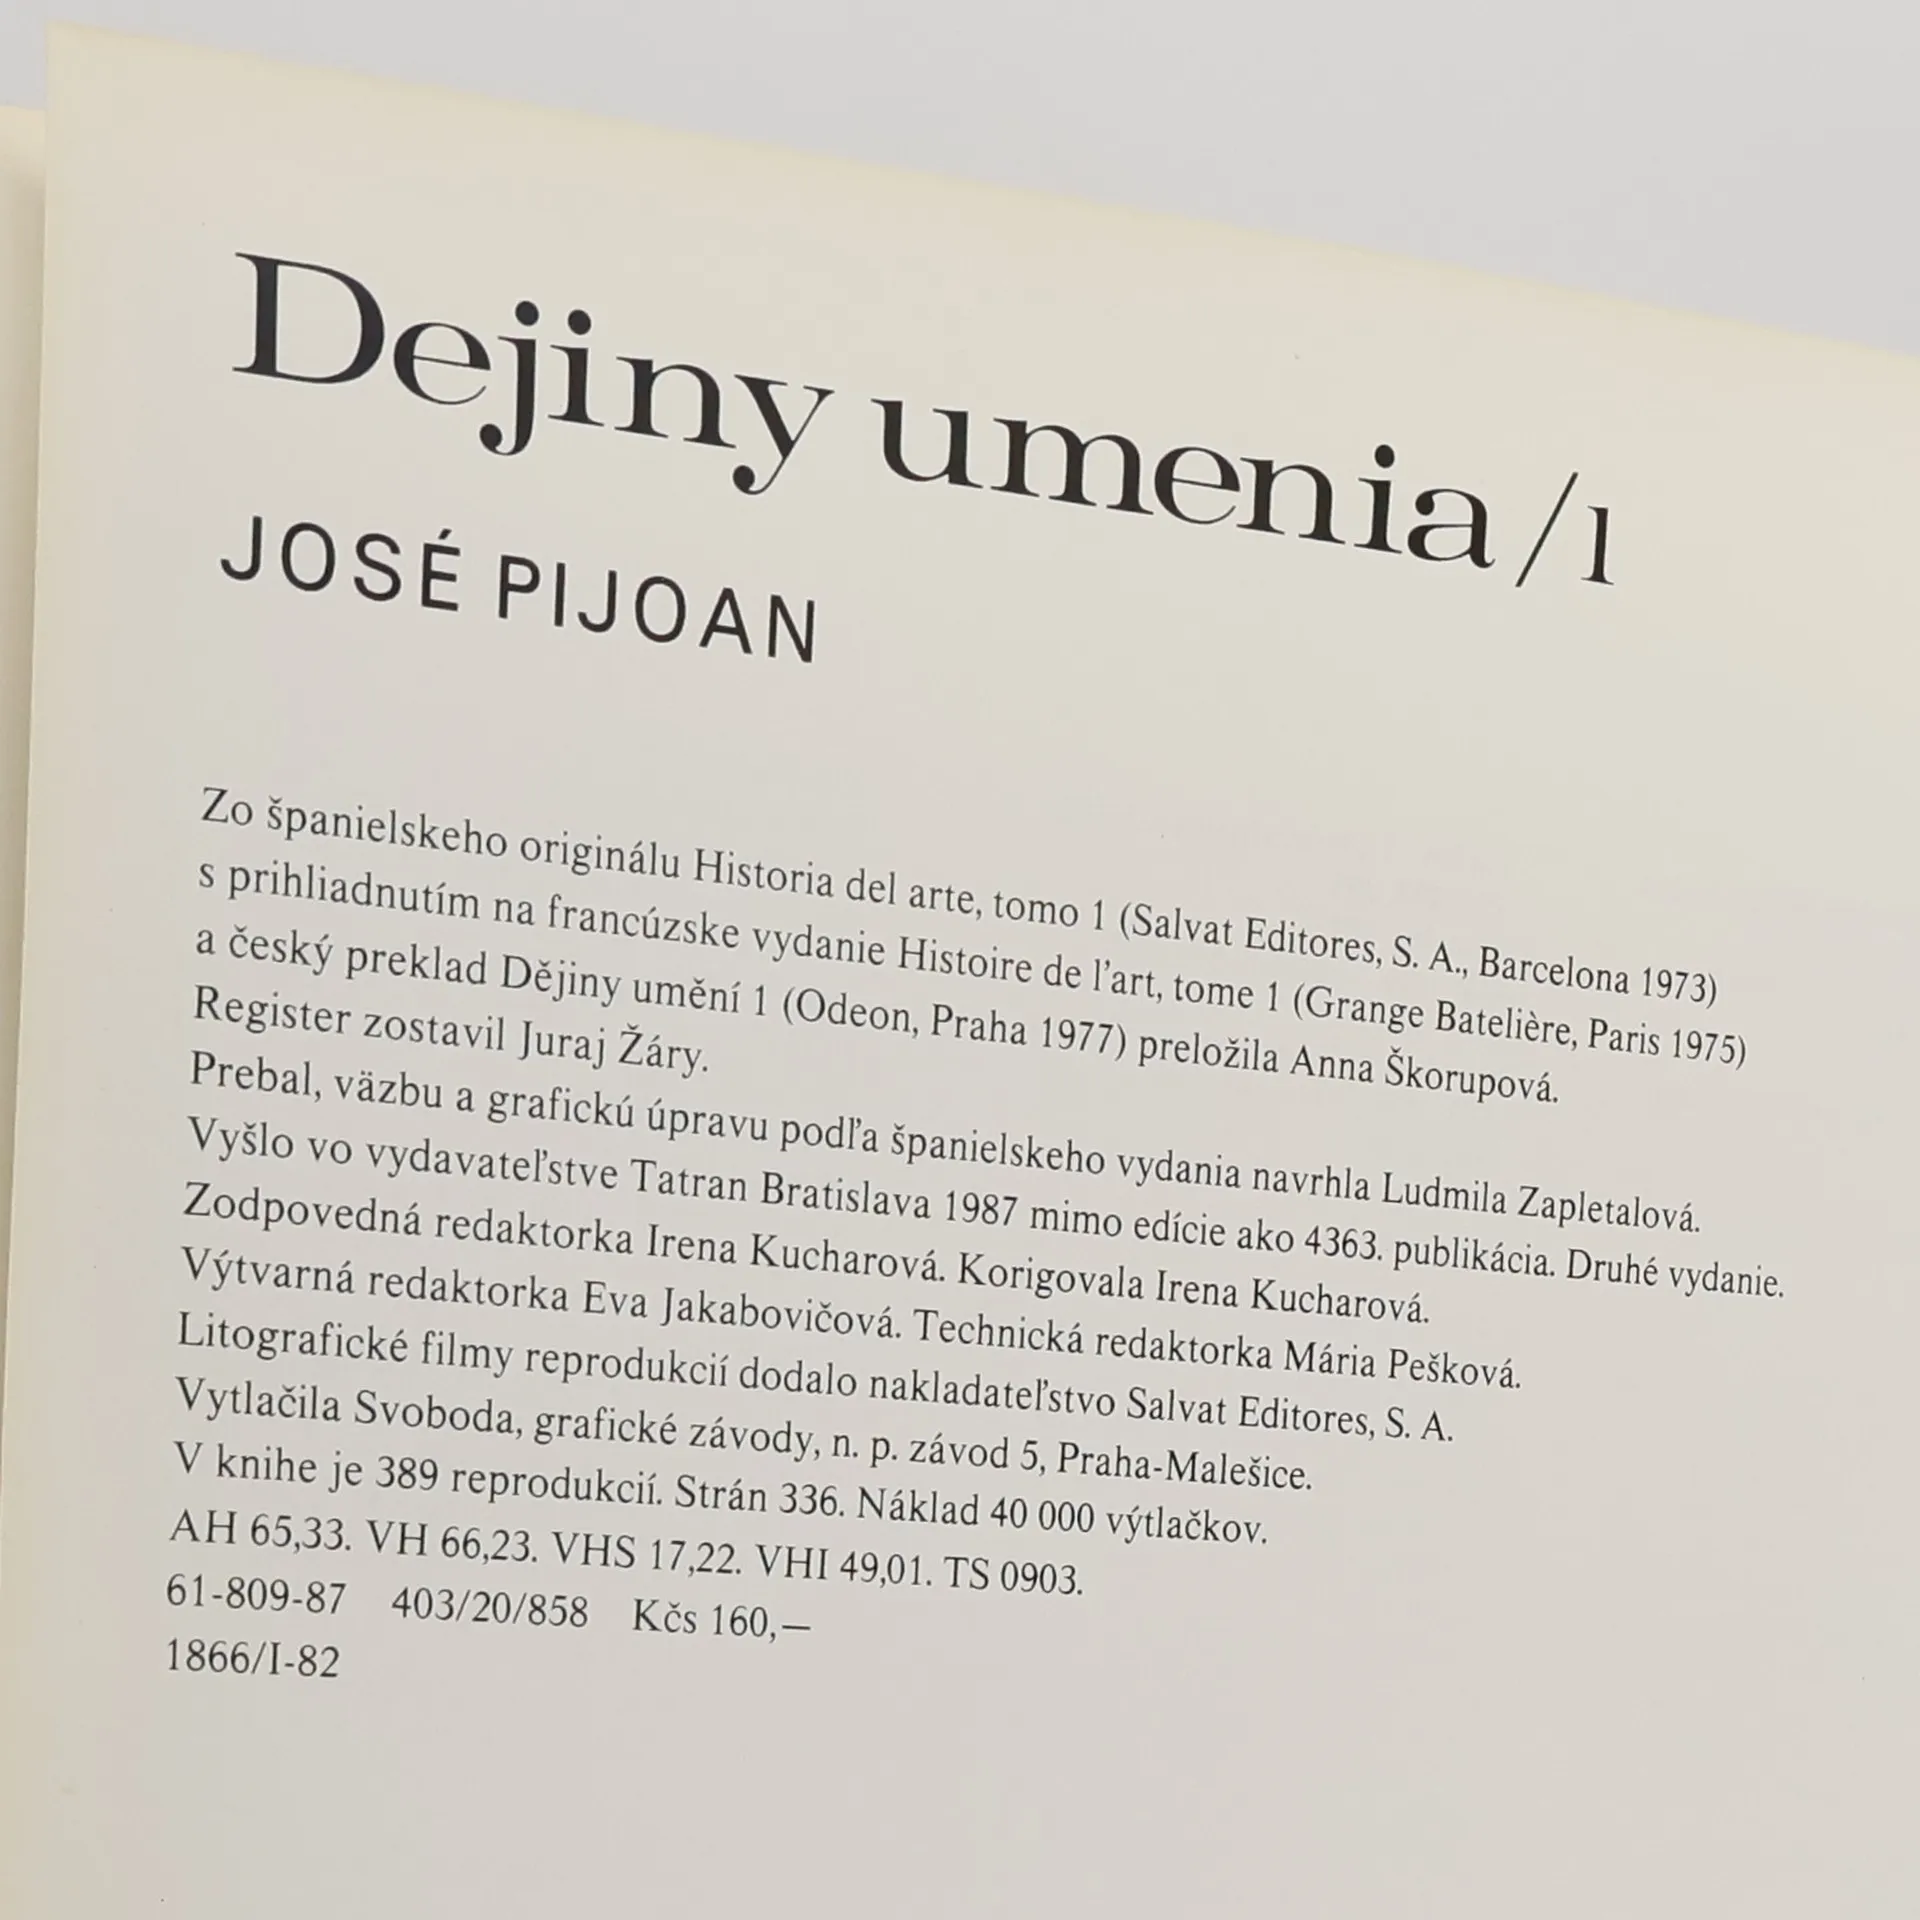 Dejiny umenia/1
JOSÉ PIJOAN
Zo španielskeho originálu Historia del arte, tomo 1 (Salvat Editores, S. A., Barcelona 1973)
s prihliadnutím na francúzske vydanie Histoire de l'art, tome 1 (Grange Batelière, Paris 1975)
a český preklad Dějiny umění 1 (Odeon, Praha 1977) preložila Anna Škorupová.
Register zostavil Juraj Žáry.
Prebal, väzbu a grafickú úpravu podľa španielskeho vydania navrhla Ludmila Zapletalová.
Vyšlo vo vydavateľstve Tatran Bratislava 1987 mimo edície ako 4363. publikácia. Druhé vydanie.
Zodpovedná redaktorka Irena Kucharová. Korigovala Irena Kucharová.
Výtvarná redaktorka Eva Jakabovičová. Technická redaktorka Mária Pešková.
Litografické filmy reprodukcií dodalo nakladateľstvo Salvat Editores, S. A.
Vytlačila Svoboda, grafické závody, n. p. závod 5, Praha-Malešice.
V knihe je 389 reprodukcií. Strán 336. Náklad 40 000 výtlačkov.
AH 65,33. VH 66,23. VHS 17,22. VHI 49,01. TS 0903.
61-809-87 403/20/858 Kčs 160,—
1866/I-82